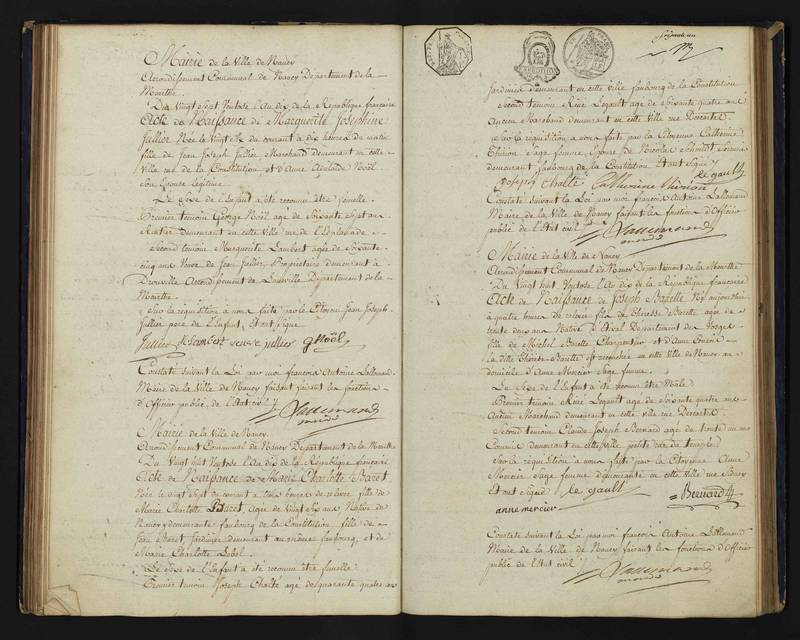 Mairie de la Ville de Nancy
Arrondissement Communal de Nancy Département de la
Meurthe.
Du Vingt sept Ventose l'An dix de la République française
Acte de Naissance de Marguerite Josephine
Jullier Née le Vingt six du courant à dix heures du matin
fille de Jean Joseph Jullier, Marchand demeurant en cette
Ville rue de la Constitution et d'Anne Adelaïde Noël
son Epouse légitime.
Le Sexe de l'Enfant a été reconnu être femelle.
Premier temoin George Noël agé de Soixante sept ans
Rentier Demeurant en cette Ville rue de l'Esplanade
Second temoin Marguerite Lambert agée de Soixante
cinq ans Veuve de Jean Jullier, Propriétaire demeurant à
Drouville Arrondissement de Lunéville Département de la
Meurthe
Sur la réquisition à nous faite par le Citoyen Jean Joseph
Jullier père de l'Enfant, Et ont Signé
Jullier M Lambert veuve jullier GNoël
Constaté suivant la Loi par moi françois Antoine Lallemand
Maire de la Ville de Nancy faisant les fonctions
d'Officier public de l'Etat civil /.
Lallemand
Mairie de la Ville de Nancy.
Arrondissement Communal de Nancy Département de la Meurthe
Du Vingt huit Ventose l'An dix de la République française
Acte de Naissance de Marie Charlotte Baret
Née le vingt sept du courant à trois heures de relevée fille de
Marie Charlotte Baret, agée de Vingt six ans Native de
Nancy y demeurante faubourg de la Constitution, fille de
Jean Baret, Jardinier demeurant au même faubourg, et de
Marie Charlotte Lobel.
Le Sexe de l'Enfant a été reconnu être femelle
Premier temoin Joseph Chatté agé de quarante quatre ans
EXPÉDITION
Jardinier demeurant en cette Ville, faubourg de la Constitution
Second temoin René Legault agé de Soixante quatre ans
Ancien Marchand demeurant en cette Ville rue Descartes.
Sur la réquisition à nous faite par la Citoyenne Catherine
Thirion Sage femme, Epouse de Nicolas Schmidt
demeurant faubourg de la Constitution Et ont Signé /.
Joseph Chatté Catherine tirion le gault
Constaté suivant la Loi par moi françois Antoine Lallemand
Maire de la Ville de Nancy faisant les fonctions d'Officier
public de l'Etat civil /.
Lallemand
Mairie de la Ville de Nancy
Arrondissement Communal de Nancy Département de la Meurthe
Du Vingt huit Ventose l'An dix de la République française
Acte de Naissance de Joseph Bazelle Né aujourdhui
à quatre heures de relevée fils de Therese Bazelle agée de
trente deux ans Native d'Aival Département des Vosges
fille de Michel Bazelle Charpentier et d'Anne
la ditte Thérèse Bazelle est accouchée en cette Ville de Nancy au
domicile d'Anne Mercier Sage femme.
Le Sexe de l'Enfant a été reconnu être Mâle.
Premier temoin René Legault agé de Soixante quatre ans
Ancien Marchand demeurant en cette Ville rue Descartes.
Second temoin Claude Joseph Bernard agé de trente un ans
Commis demeurant en cette Ville petite rue du temple
Sur la réquisition à nous faite par la Citoyenne Anne
Mercier Sage femme demeurante en cette Ville rue
Et ont Signé /. le gault Bernard
anne mercier
Constaté suivant la Loi par moi françois Antoine Lallemand
Maire de la Ville de Nancy faisant les fonctions d'Officier
public de l'Etat civil /.
Lallemand